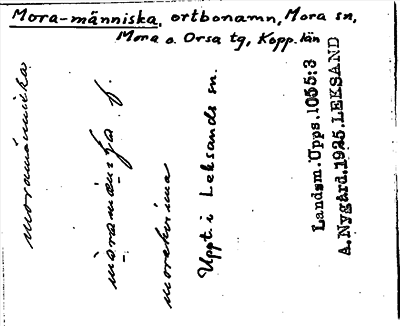 Mora-människa, ortbonamn, Mora sn,
Mora o. Orsa tg, Kopp. län
moramänniska
morakvinna
Uppt. i Leksands sn.
Landsm. Upps. 1055:3
A. Nygård. 1925. LEKSAND